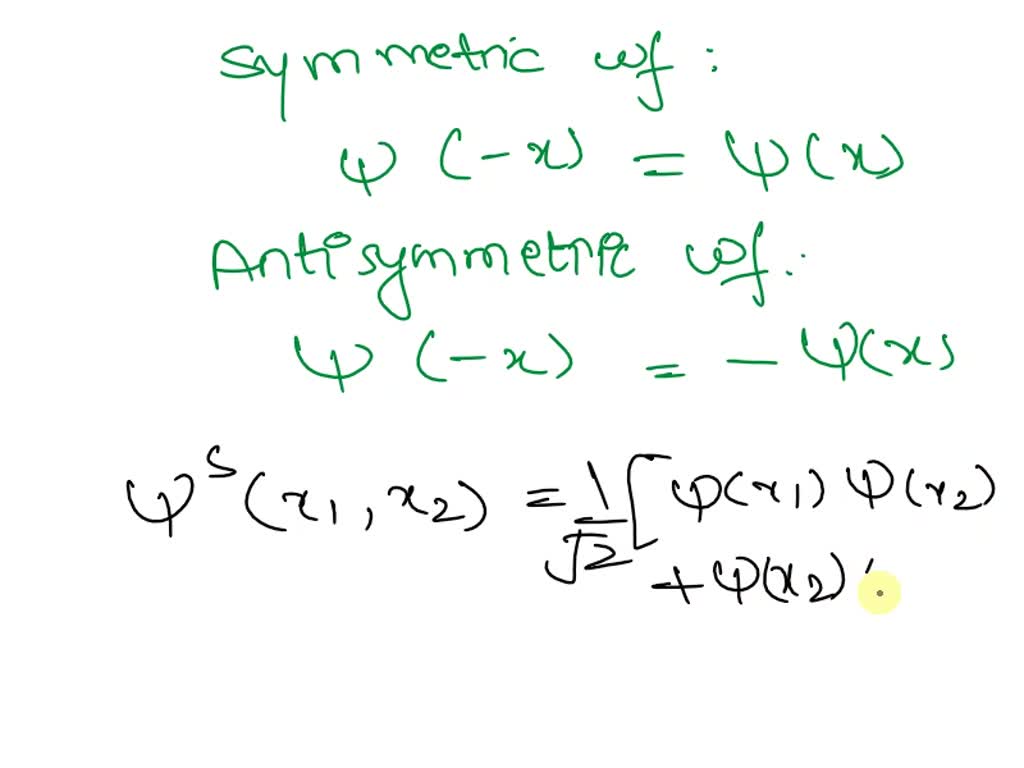 Symmetric wf :
ψ (-x) = ψ(x)
Antisymmetric wf :
ψ (-x) = - ψ(x)
ψ^S (x₁, x₂) = 1/√2 [ ψ(x₁) ψ(x₂)
+ ψ(x₂)